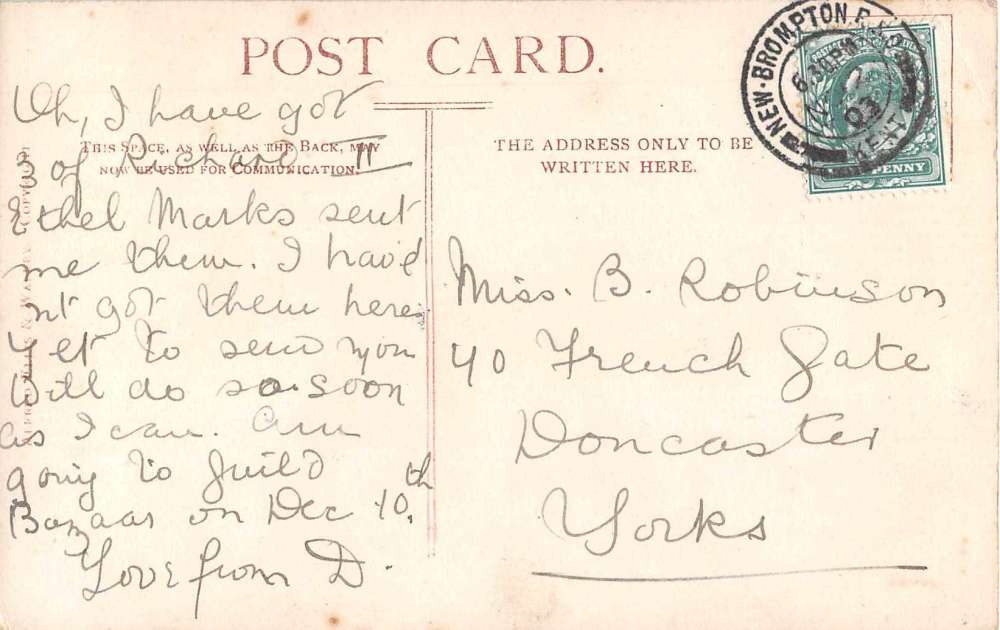 POST CARD.
THIS SPACE, AS WELL AS THE BACK, MAY
NOW BE USED FOR COMMUNICATION.
THE ADDRESS ONLY TO BE
WRITTEN HERE.
NEW-BROMPTON
6 30 PM
03
KENT
PENNY
Oh, I have got
3 of Richard II
Ethel Marks sent
me them. I have
n't got them here
yet to send you
Will do so soon
as I can. Am
going to Guild
Bazaar on Dec 10th.
Love from D.
Miss. B. Robinson
40 French Gate
Doncaster
Yorks